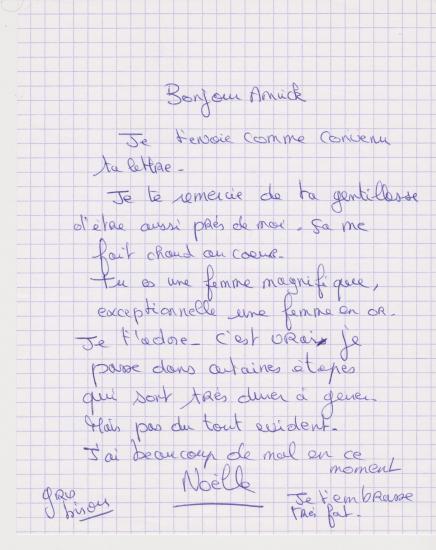 Bonjour Annick
Je t'envoie comme convenu
ta lettre.
Je te remercie de ta gentillesse
d'être aussi près de moi. ça me
fait chaud au coeur.
Tu es une femme magnifique,
exceptionnelle une femme en or.
Je t'adore - c'est vrai je
passe dans certaines étapes
qui sont très durer à gerer.
Mais pas du tout evident.
J'ai beaucoup de mal en ce
moment
Noëlle
gros
bisous
Je t'embrasse
très fort.